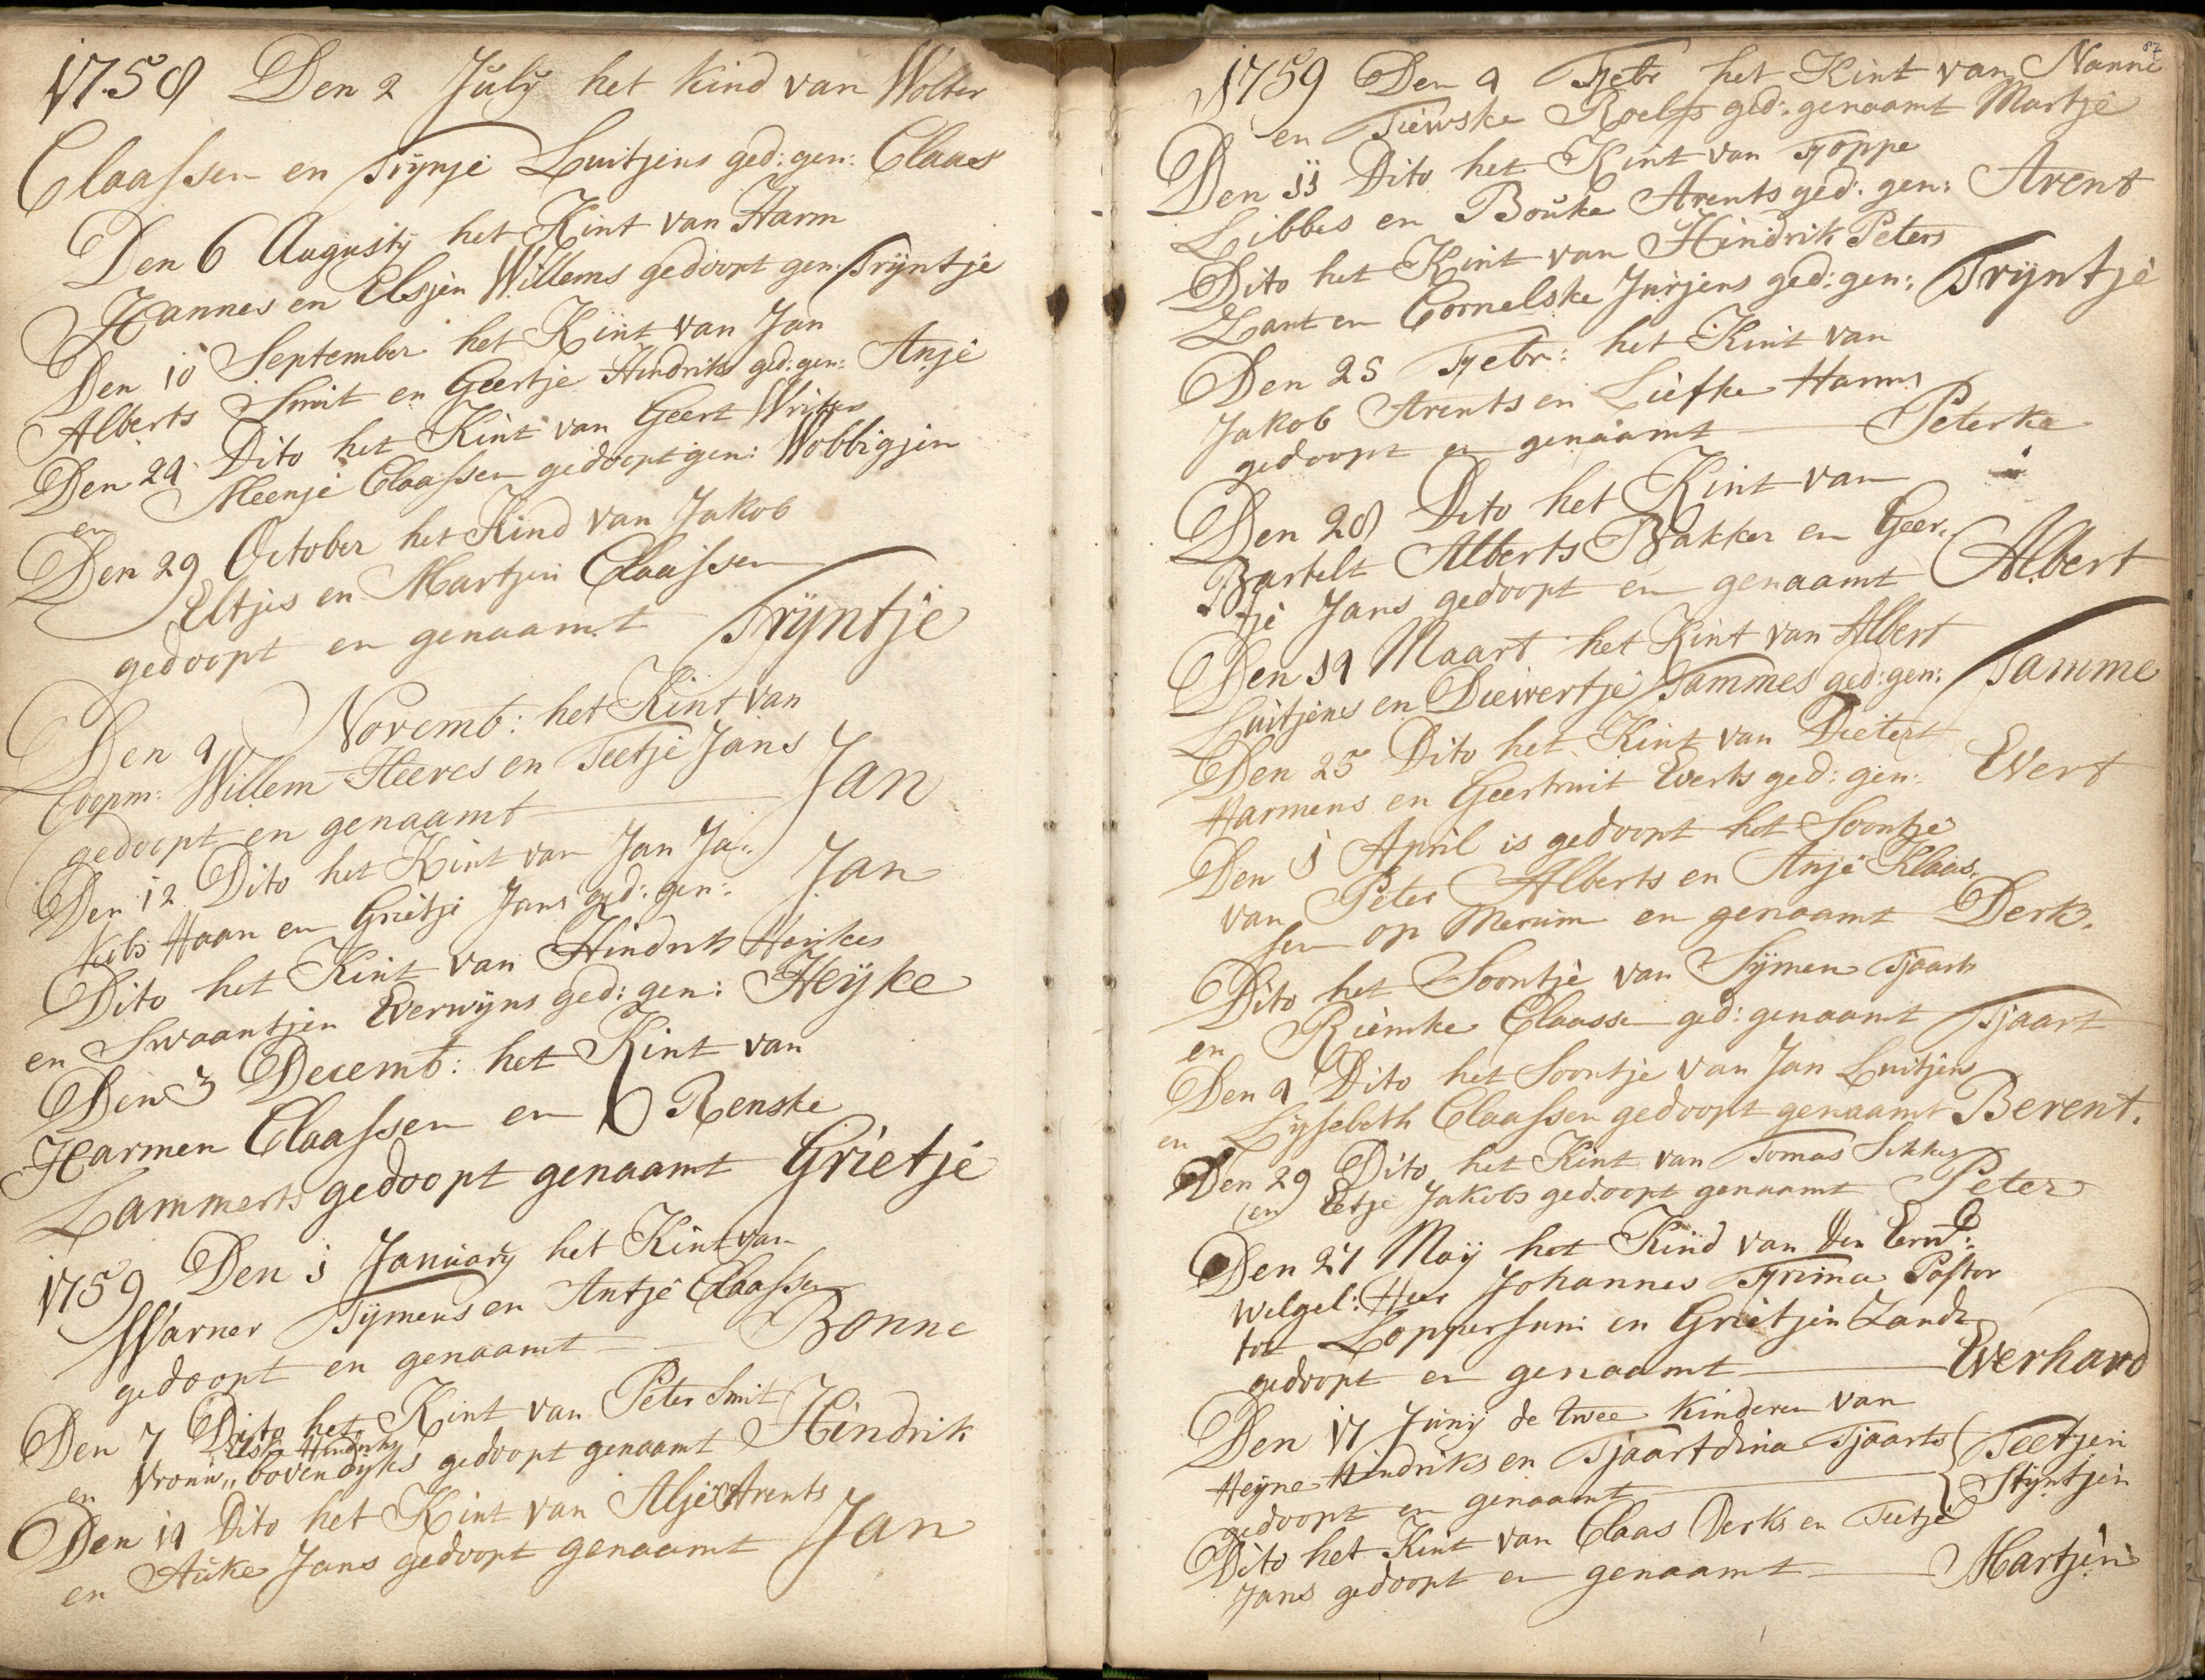 1758 Den 2 July het kind van Wolter
Claassen en Trynje Luitjens ged: gen: Claas
Den 6 Augustij het Kint van Harm
Hannes en Elsjen Willems gedoopt gen: Trijntje
Den 10 September het Kint van Jan
Alberts Smit en Geertje Hindriks ged: gen: Anje
Den 24 Dito het Kint van Geert Writers
en Meenje Claassen gedoopt gen: Wobbigjen
Den 29 October het Kind van Jakob
Eltjes en Martjen Claassen
gedoopt en genaamt Trijntje
Den 9 Novemb: het Kint van
Coopm: Willem Heeres en Teetje Jans
gedoopt en genaamt Jan
Den 12 Dito het Kint van Jan Ja:
kobs Haan en Grietje Jans ged: gen: Jan
Dito het Kint van Hindrik Heijkes
en Swaantjen Everwijns ged: gen: Heijke
Den 3 Decemb: het Kint van
Harmen Claassen en Renske
Lammerts gedoopt genaamt Grietje
1759 Den 1 January het Kint van
Warner Tijmens en Antje Claassen
gedoopt en genaamt Bonne
Den 7 Dito het Kint van Peter Smit
Hindriks
en Vrouw,, bovendijks gedoopt genaamt Hindrik
Den 14 Dito het Kint van Alje Arents
en Auke Jans gedoopt genaamt Jan
87
1759 Den 4 Febr het Kint van Nanne
en Tiewske Roelfs ged: genaamt Martje
Den 11 Dito het Kint van Foppe
Libbes en Bouke Arents ged: gen: Arent
Dito het Kint van Hindrik Peters
Zant en Cornelske Jurjens ged: gen: Trijntje
Den 25 Febr: het Kint van
Jakob Arents en Liefke Harms
gedoopt en genaamt Peterke
Den 28 Dito het Kint van
Bartelt Alberts Bakker en Geer,,
tje Jans gedoopt en genaamt Albert
Den 14 Maart het Kint van Albert
Luitjens en Diewertje Tammes ged: gen: Tamme
Den 25 Dito het Kint van Dietert
Harmens en Geertruit Everts ged: gen: Evert
Den 1 April is gedoopt het Soontje
van Peter Alberts en Anje Klaas,
sen op Merum en genaamt Derk.
Dito het Soontje van Sijmen Tjaarts
en Riemke Claasse ged: genaamt Tjaart
Den 9 Dito het Soontje van Jan Luitjens
en Lijsebeth Claassen gedoopt genaamt Berent.
Den 29 Dito het Kint van Tomas Sikkes
en Eetje Jakobs gedoopt genaamt Peter
Den 27 Maij het Kind van den Eerw:
Welgel: Heer Johannes Frima Pastor
tot Loppersum en Grietjen Zandt
gedoopt en genaamt Everhard
Den 17 Junij de twee Kinderen van
Heijne Hindriks en Tjaartdina Tjaarts Teetjen
gedoopt en genaamt Stijntjen
Dito het Kint van Claas Derks en Teetje
Jans gedoopt en genaamt Martjen